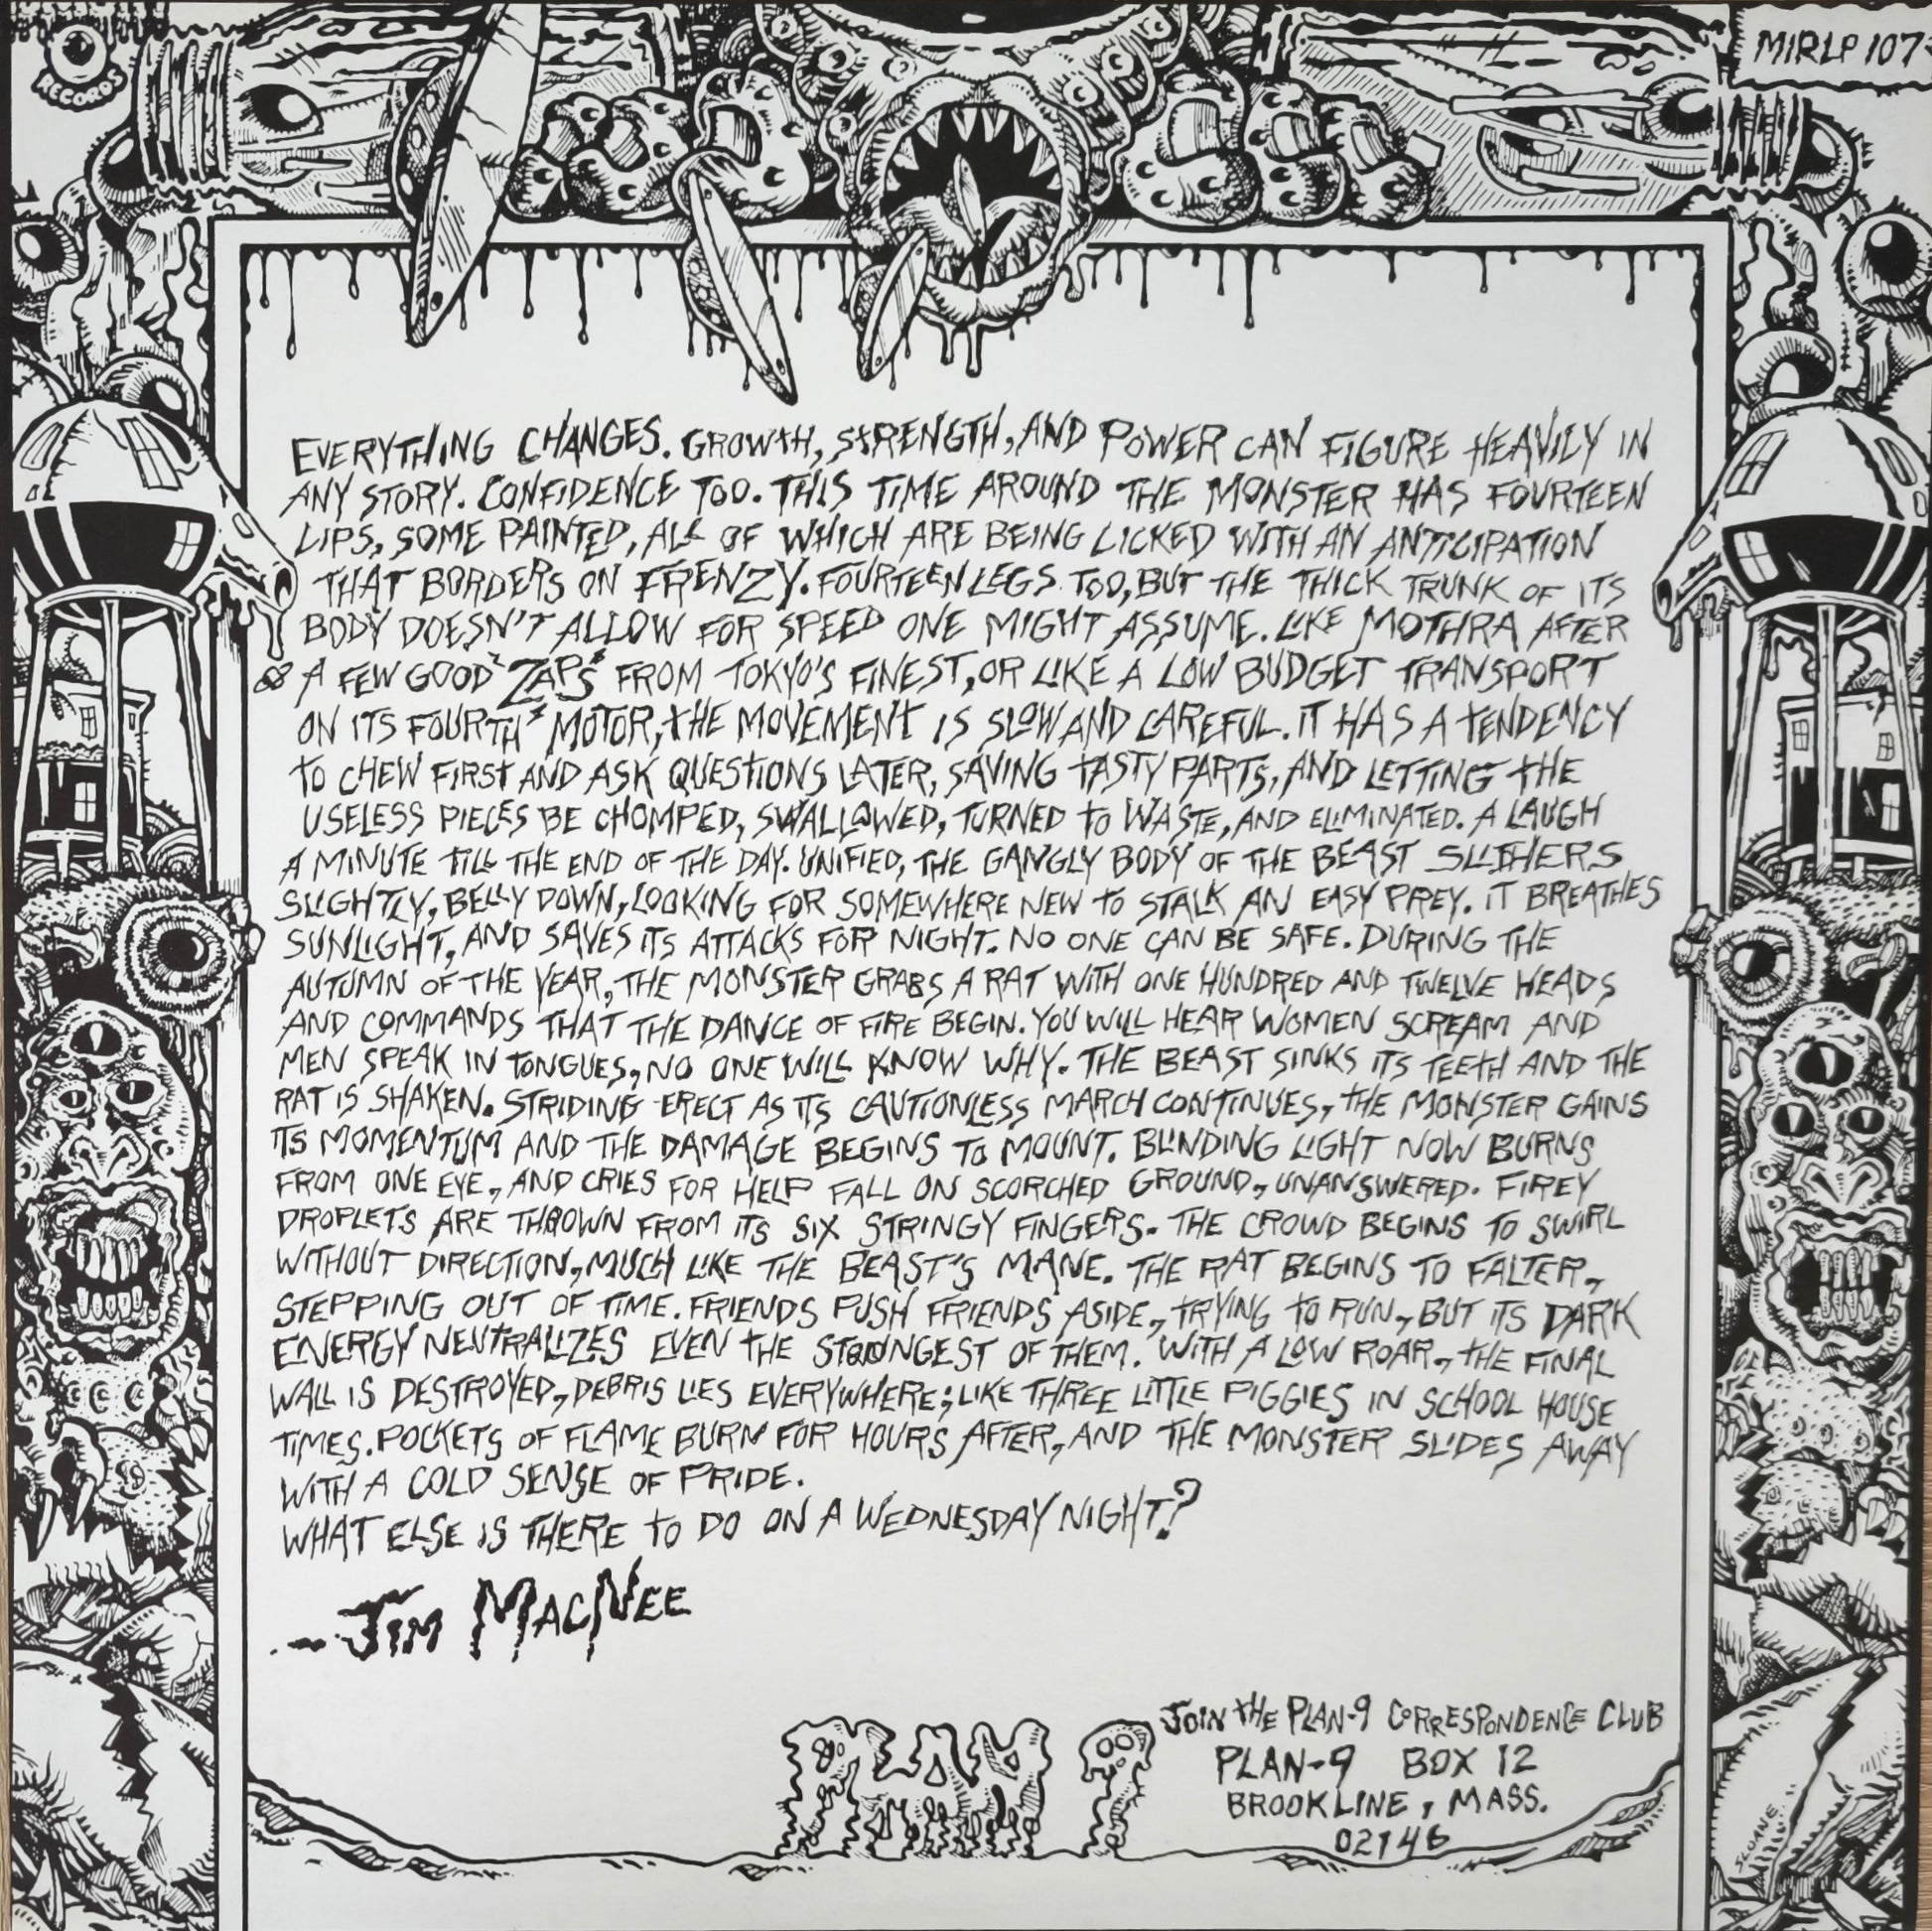 RECORDS
MIRLP 107
EVERYTHING CHANGES. GROWTH, STRENGTH, AND POWER CAN FIGURE HEAVILY IN
ANY STORY. CONFIDENCE TOO. THIS TIME AROUND THE MONSTER HAS FOURTEEN
LIPS, SOME PAINTED, ALL OF WHICH ARE BEING LICKED WITH AN ANTICIPATION
THAT BORDERS ON FRENZY. FOURTEEN LEGS TOO, BUT THE THICK TRUNK OF ITS
BODY DOESN'T ALLOW FOR SPEED ONE MIGHT ASSUME. LIKE MOTHRA AFTER
A FEW GOOD "ZAPS" FROM TOKYO'S FINEST, OR LIKE A LOW BUDGET TRANSPORT
ON ITS FOURTH MOTOR, THE MOVEMENT IS SLOW AND CAREFUL. IT HAS A TENDENCY
TO CHEW FIRST AND ASK QUESTIONS LATER, SAVING TASTY PARTS, AND LETTING THE
USELESS PIECES BE CHOMPED, SWALLOWED, TURNED TO WASTE, AND ELIMINATED. A LAUGH
A MINUTE TILL THE END OF THE DAY. UNIFIED, THE GANGLY BODY OF THE BEAST SLITHERS
SLIGHTLY, BELLY DOWN, LOOKING FOR SOMEWHERE NEW TO STALK AN EASY PREY. IT BREATHES
SUNLIGHT, AND SAVES ITS ATTACKS FOR NIGHT. NO ONE CAN BE SAFE. DURING THE
AUTUMN OF THE YEAR, THE MONSTER GRABS A RAT WITH ONE HUNDRED AND TWELVE HEADS
AND COMMANDS THAT THE DANCE OF FIRE BEGIN. YOU WILL HEAR WOMEN SCREAM AND
MEN SPEAK IN TONGUES, NO ONE WILL KNOW WHY. THE BEAST SINKS ITS TEETH AND THE
RAT IS SHAKEN. STRIDING ERECT AS ITS CAUTIONLESS MARCH CONTINUES, THE MONSTER GAINS
ITS MOMENTUM AND THE DAMAGE BEGINS TO MOUNT. BLINDING LIGHT NOW BURNS
FROM ONE EYE, AND CRIES FOR HELP FALL ON SCORCHED GROUND, UNANSWERED. FIREY
DROPLETS ARE THROWN FROM ITS SIX STRINGY FINGERS. THE CROWD BEGINS TO SWIRL
WITHOUT DIRECTION, MUCH LIKE THE BEAST'S MANE. THE RAT BEGINS TO FALTER,
STEPPING OUT OF TIME. FRIENDS PUSH FRIENDS ASIDE, TRYING TO RUN, BUT ITS DARK
ENERGY NEUTRALIZES EVEN THE STRONGEST OF THEM. WITH A LOW ROAR, THE FINAL
WALL IS DESTROYED, DEBRIS LIES EVERYWHERE; LIKE THREE LITTLE PIGGIES IN SCHOOL HOUSE
TIMES. POCKETS OF FLAME BURN FOR HOURS AFTER, AND THE MONSTER SLIDES AWAY
WITH A COLD SENSE OF PRIDE.
WHAT ELSE IS THERE TO DO ON A WEDNESDAY NIGHT?
-- JIM MACNEE
PLAN 9
JOIN THE PLAN-9 CORRESPONDENCE CLUB
PLAN-9 BOX 12
BROOKLINE, MASS.
02146
SLOANE